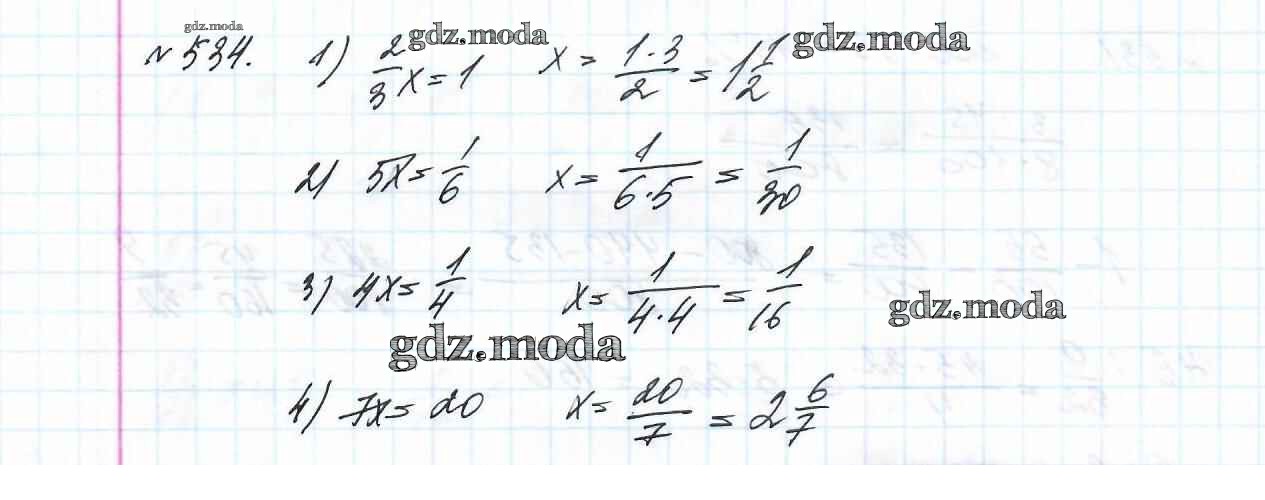 gdz.moda
№ 534. 1) 2/3 x = 1 x = 1·3/2 = 1 1/2
gdz.moda gdz.moda
2) 5x = 1/6 x = 1/6·5 = 1/30
3) 4x = 1/4 x = 1/4·4 = 1/16
gdz.moda
gdz.moda
4) 7x = 20 x = 20/7 = 2 6/7